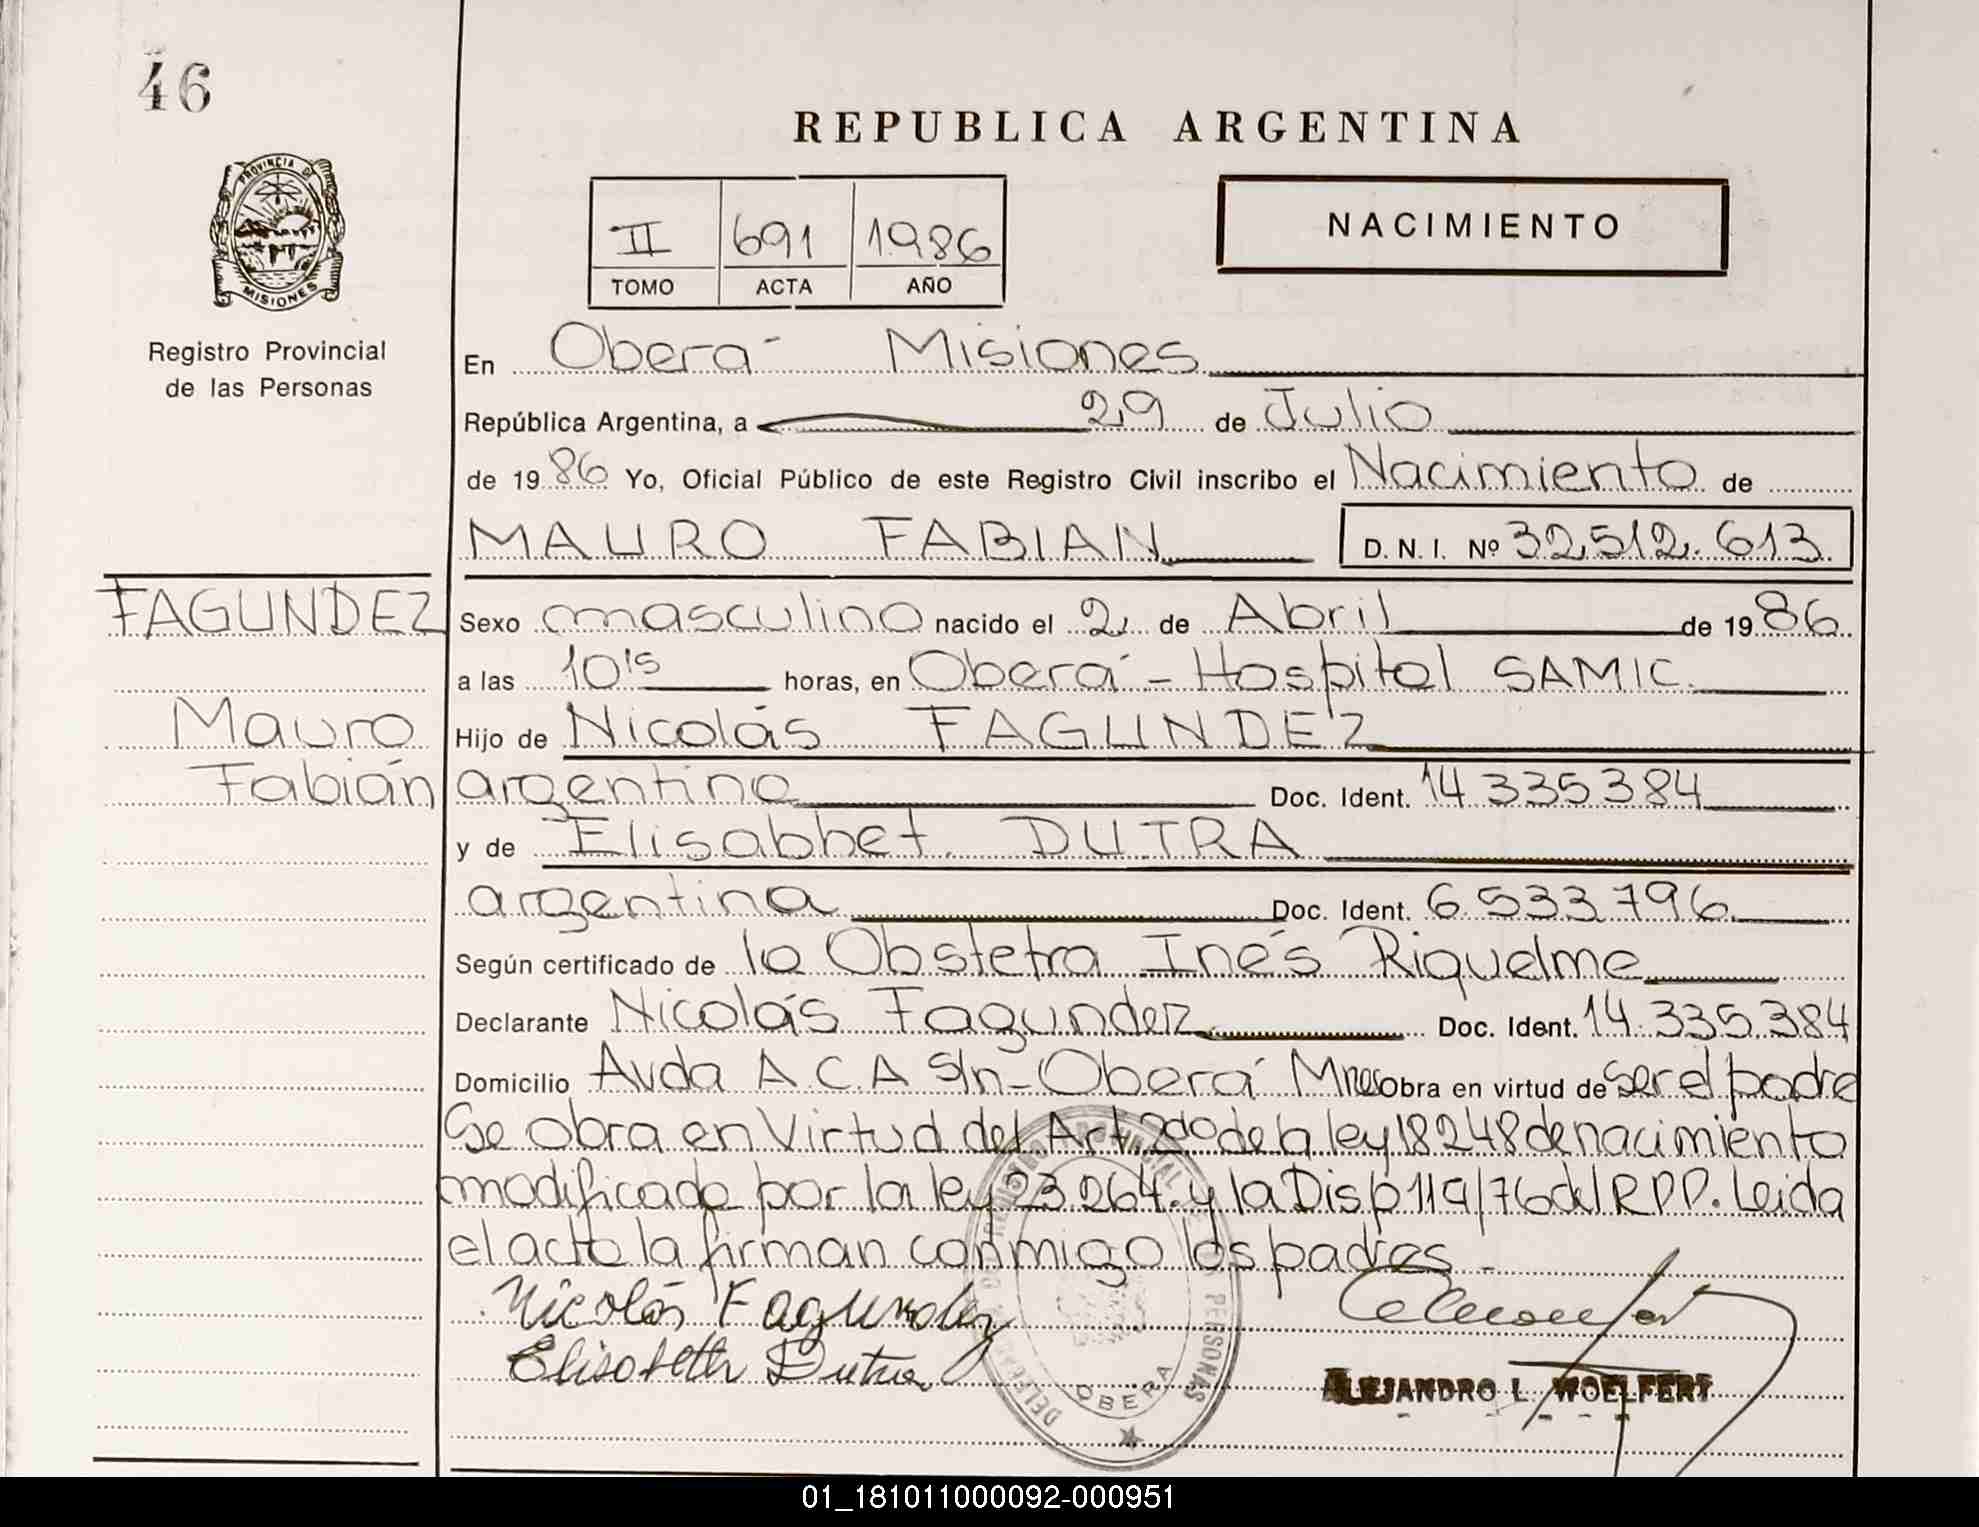 46
REPUBLICA ARGENTINA
PROVINCIA DE
MISIONES
II 691 1986
TOMO ACTA AÑO
NACIMIENTO
Registro Provincial
de las Personas
En Oberá - Misiones
República Argentina, a 29 de Julio
de 1986 Yo, Oficial Público de este Registro Civil inscribo el Nacimiento de
MAURO FABIAN D. N. I. Nº 32.512.613
FAGUNDEZ
Mauro
Fabián
Sexo masculino nacido el 2 de Abril de 1986
a las 10 15 horas, en Oberá - Hospital SAMIC.
Hijo de Nicolás FAGUNDEZ
argentino Doc. Ident. 14.335.384
y de Elisabhet DUTRA
argentina Doc. Ident. 6.533.796
Según certificado de la Obstetra Inés Riquelme
Declarante Nicolás Fagundez Doc. Ident. 14.335.384
Domicilio Avda A.C.A S/n - Oberá Mnes obra en virtud de ser el padre
Se obra en Virtud del Art 2do de la ley 18248 de nacimiento
modificado por la ley 23.264. y la Disp 119/76 del R.P.P. Leida
el acta la firman conmigo los padres -
Nicolás Fagundez
Elisabeth Dutra
ALEJANDRO L. WOELFERT
REGISTRO PROVINCIAL DE LAS PERSONAS
OBERA
01_181011000092-000951